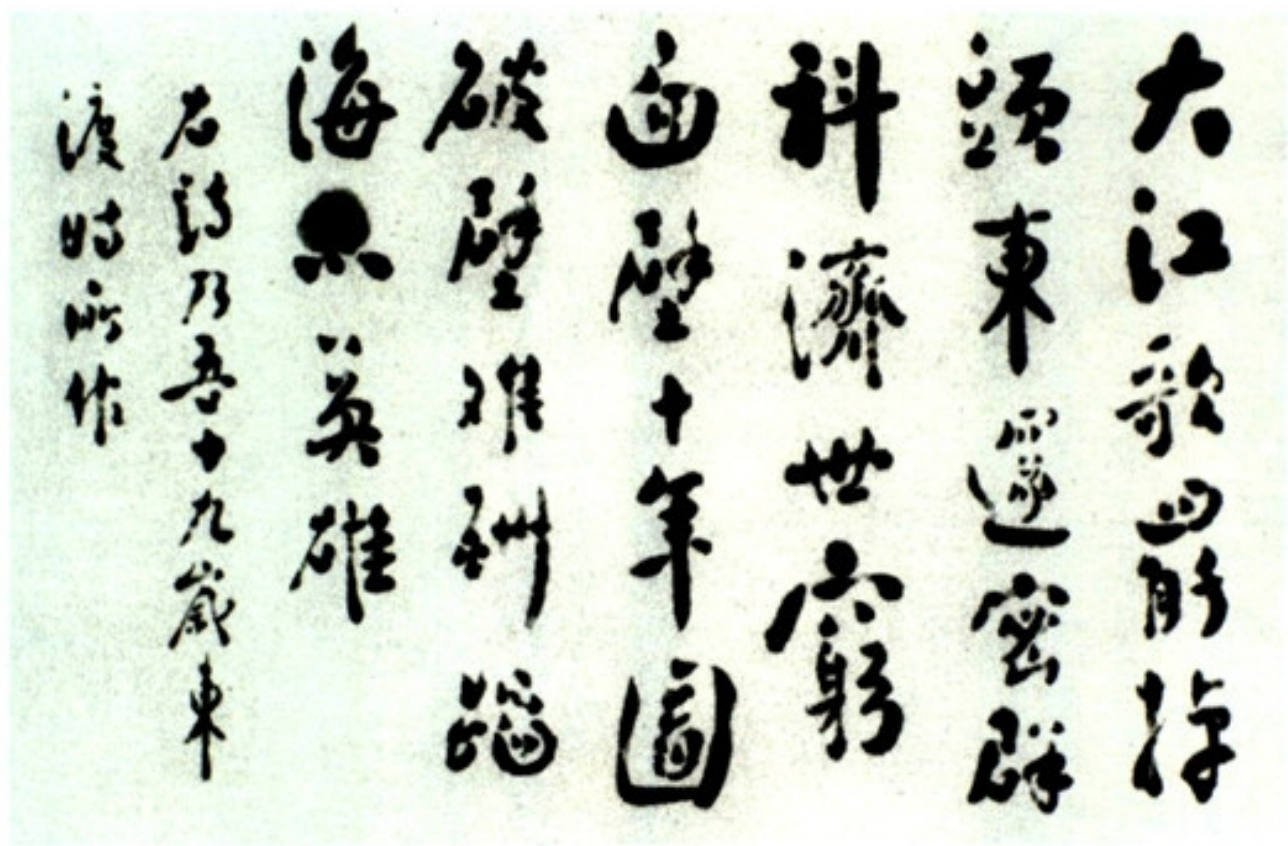 大江歌罷掉
頭東邃密群
科濟世窮
面壁十年圖
破壁难酬蹈
海亦英雄
右詩乃吾十九歲東
渡時所作